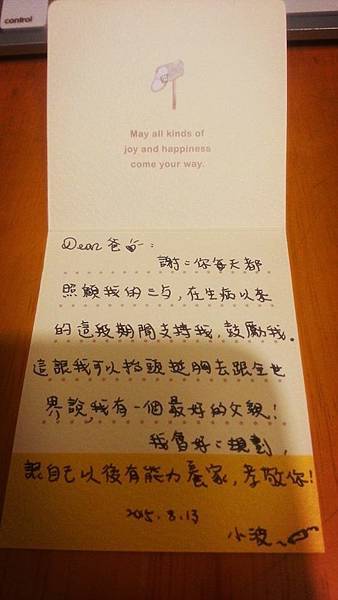 control
May all kinds of
joy and happiness
come your way.
Dear 爸爸:
謝謝你每天都
照顧我的三餐,在生病以來
的這段期間支持我,鼓勵我。
這讓我可以抬頭挺胸去跟全世
界說,我有一個最好的父親!
我會好好規劃,
讓自己以後有能力養家,孝敬你!
2015.8.13
小波